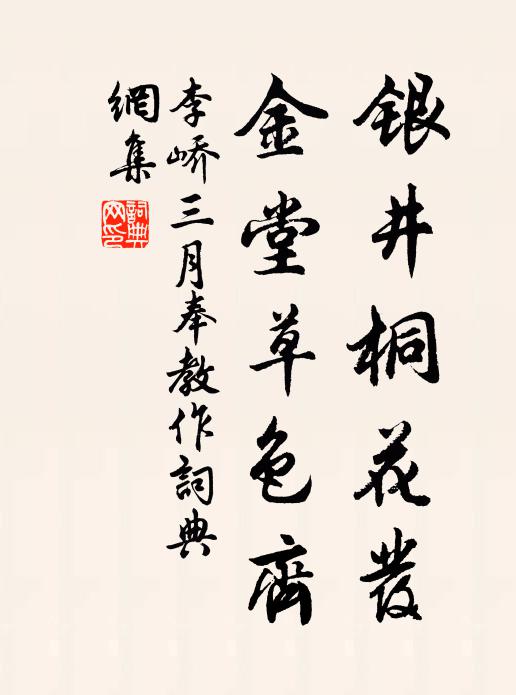 銀井桐花發
金堂草色齊
李嶠三月奉教作詞典
網集
詞典
网印